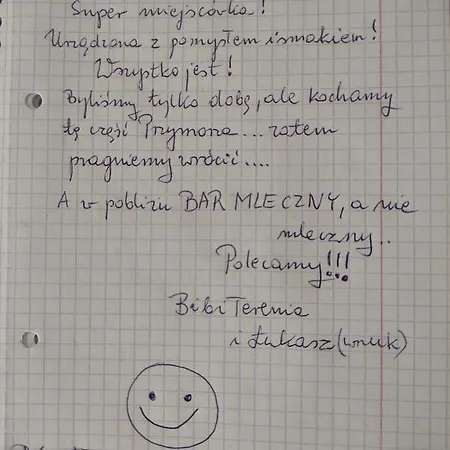 Super miejscówka!
Urządzona z pomysłem i smakiem!
Wszystko jest!
Byliśmy tylko dobę, ale kochamy
tę część Przymorza... zatem
pragniemy wrócić....
A w pobliżu BAR MLECZNY, a nie
mleczny..
Polecamy!!!
Babi Terenia
i Łukasz (wnuk)